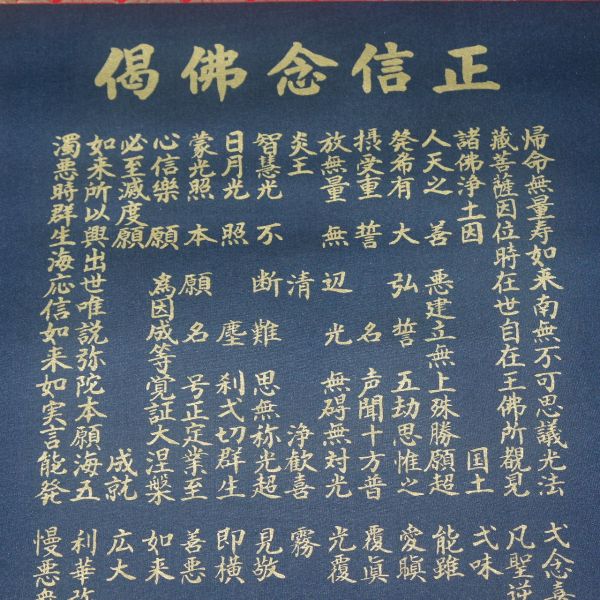 正信念佛偈
帰命無量寿如来南無不可思議光法
藏菩薩因位時在世自在王佛所覩見
諸佛浄土因国土
人天之善悪建立無上殊勝願超
発希有大弘誓五劫思惟之
摂受重誓名声聞十方普
放無量無辺光無碍無対光
炎王清浄歓喜
智慧光不断難思無称光超
日月光照塵刹弌切群生
蒙光照本願名号正定業至
心信樂願為因成等覚証大涅槃
必至滅度願成就
如来所以興出世唯説弥陀本願海五
濁悪時群生海応信如来如実言能発
弌念喜
凡聖逆
弌味
能雖
愛瞋
覆眞
光覆
霧
見敬
即横
善悪
如来
広大
利華
慢悪